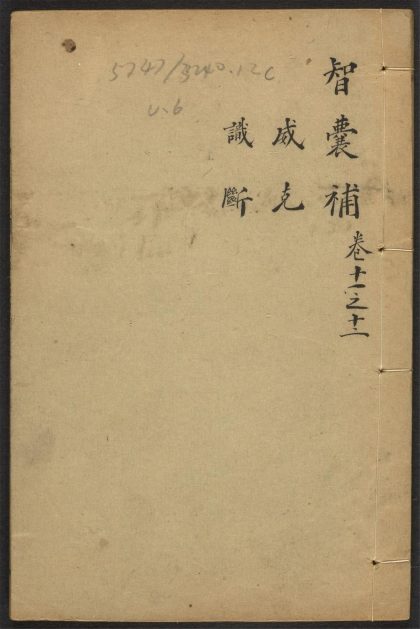 智囊補 卷十一之十二
威克
識斷
5747/3240.12C
v.6